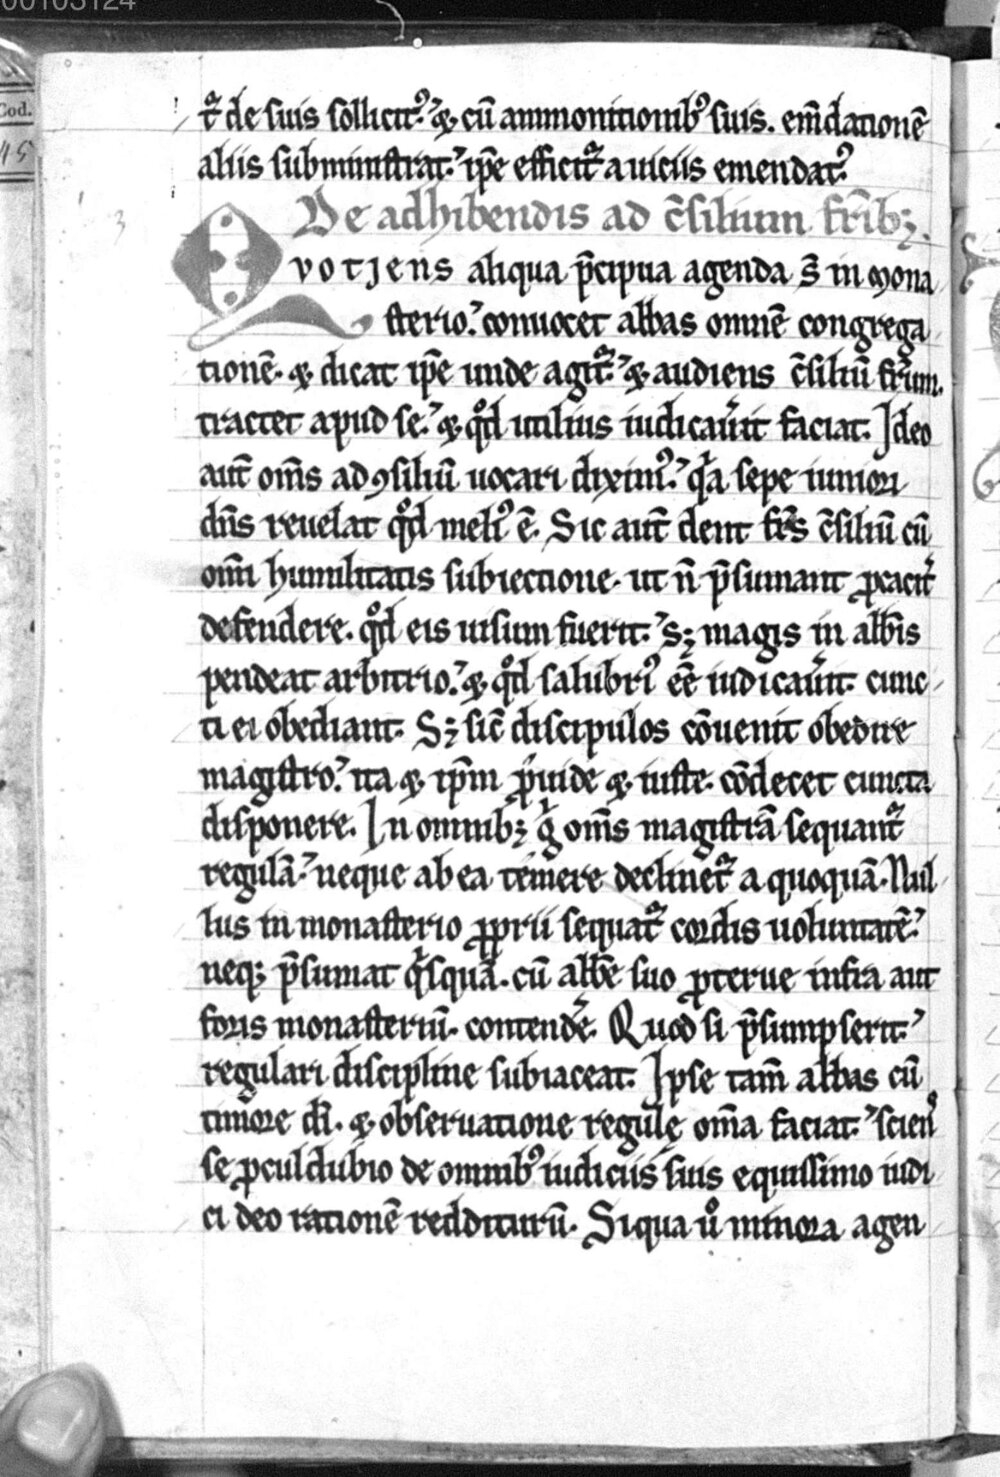 00103124
Cod.
45
3
t᷒ de suis sollicit᷒. ⁊ cū ammonitionib᷒ suis. em̄dationē
aliis subministrat. ip̄e efficit᷒ a uiciis emendat᷒.
De adhibendis ad c̄silium fr̄ib;.
QVOTIENS aliqua p̄cipua agenda s̄ in mona
sterio. conuocet abbas omnē congrega
tionē. ⁊ dicat ip̄e unde agit᷒. ⁊ audiens c̄siliū fr̄um.
tractet apud se. ⁊ qd̊ utilius iudicau̾it faciat. Ideo
aut̄ om̄s ad ꝯsiliū uocari dixim᷒. qͥa sepe iuniori
dn̄s reuelat qd̊ meli᷒ ē. Sic aut̄ dent fr̄s c̄siliū cū
om̄i humilitatis subiectione. ut n̄ p̄sumant ꝓcacit̾
defendere. qd̊ eis uisum fuerit. s; magis in abb̄is
pendeat arbitrio. ⁊ qd̊ salubri᷒ eē̄ iudicau̾it. cunc
ti ei obediant. S; sic̄ discipulos cōuenit obedire
magistro. ita ⁊ ip̄m ꝓuide ⁊ iuste. cōdecet cuncta
disponere. In omnib; gͥ om̄s magistrā sequant᷒
regulā. neque ab ea temere declinet᷒ a quoquā. Nul
lus in monasterio ꝓprii sequat᷒ cordis uoluntatē.
neq; p̄sumat qͥsquā. cū abb̄e suo ꝓterue infra aut
foris monasteriū. contende̾. Quod si p̄sumpserit.
regulari discipline subiaceat. Ipse tam̄ abbas cū
timore dī. ⁊ obseruatione regulę om̄a faciat. scien᷒
se ꝓculdubio de omnib᷒ iudiciis suis equissimo iudi
ci deo rationē redditurū. Siqua ů minora agen